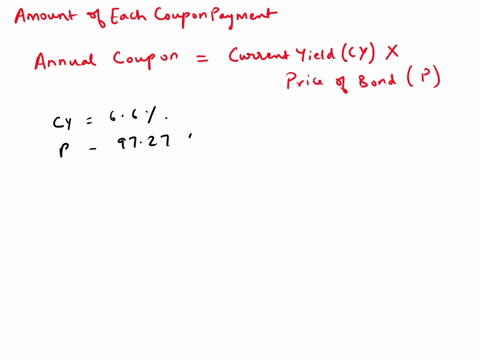 Amount of Each Coupon Payment
Annual Coupon = Current Yield (CY) X
Price of Bond (P)
CY = 6.6%.
P - 97.27